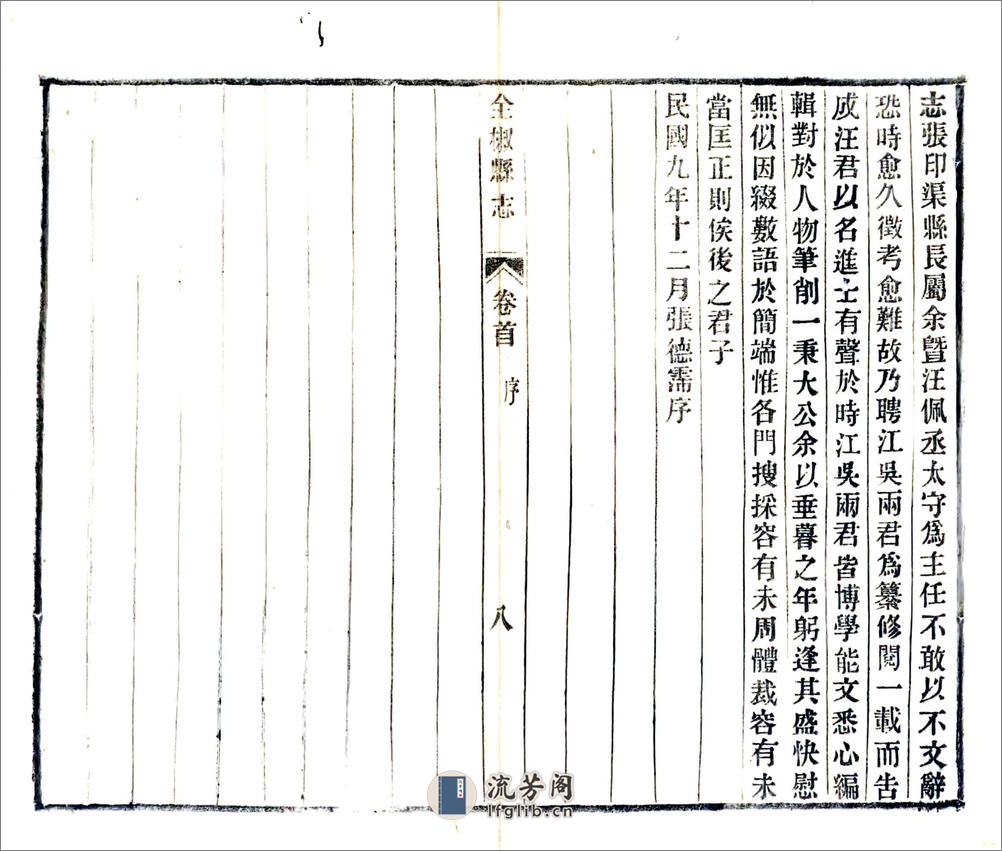 志張印渠縣長屬余曁汪佩丞太守爲主任不敢以不文辭
恐時愈久徵考愈難故乃聘江吳兩君爲纂修閱一載而告
成汪君以名進士有聲於時江吳兩君皆博學能文悉心編
輯對於人物筆削一秉大公余以垂暮之年躬逢其盛快慰
無似因綴數語於簡端惟各門搜採容有未周體裁容有未
當匡正則俟後之君子
民國九年十二月張德霈序
全椒縣志 卷首 序 八
流芳阁
lfglib.cn